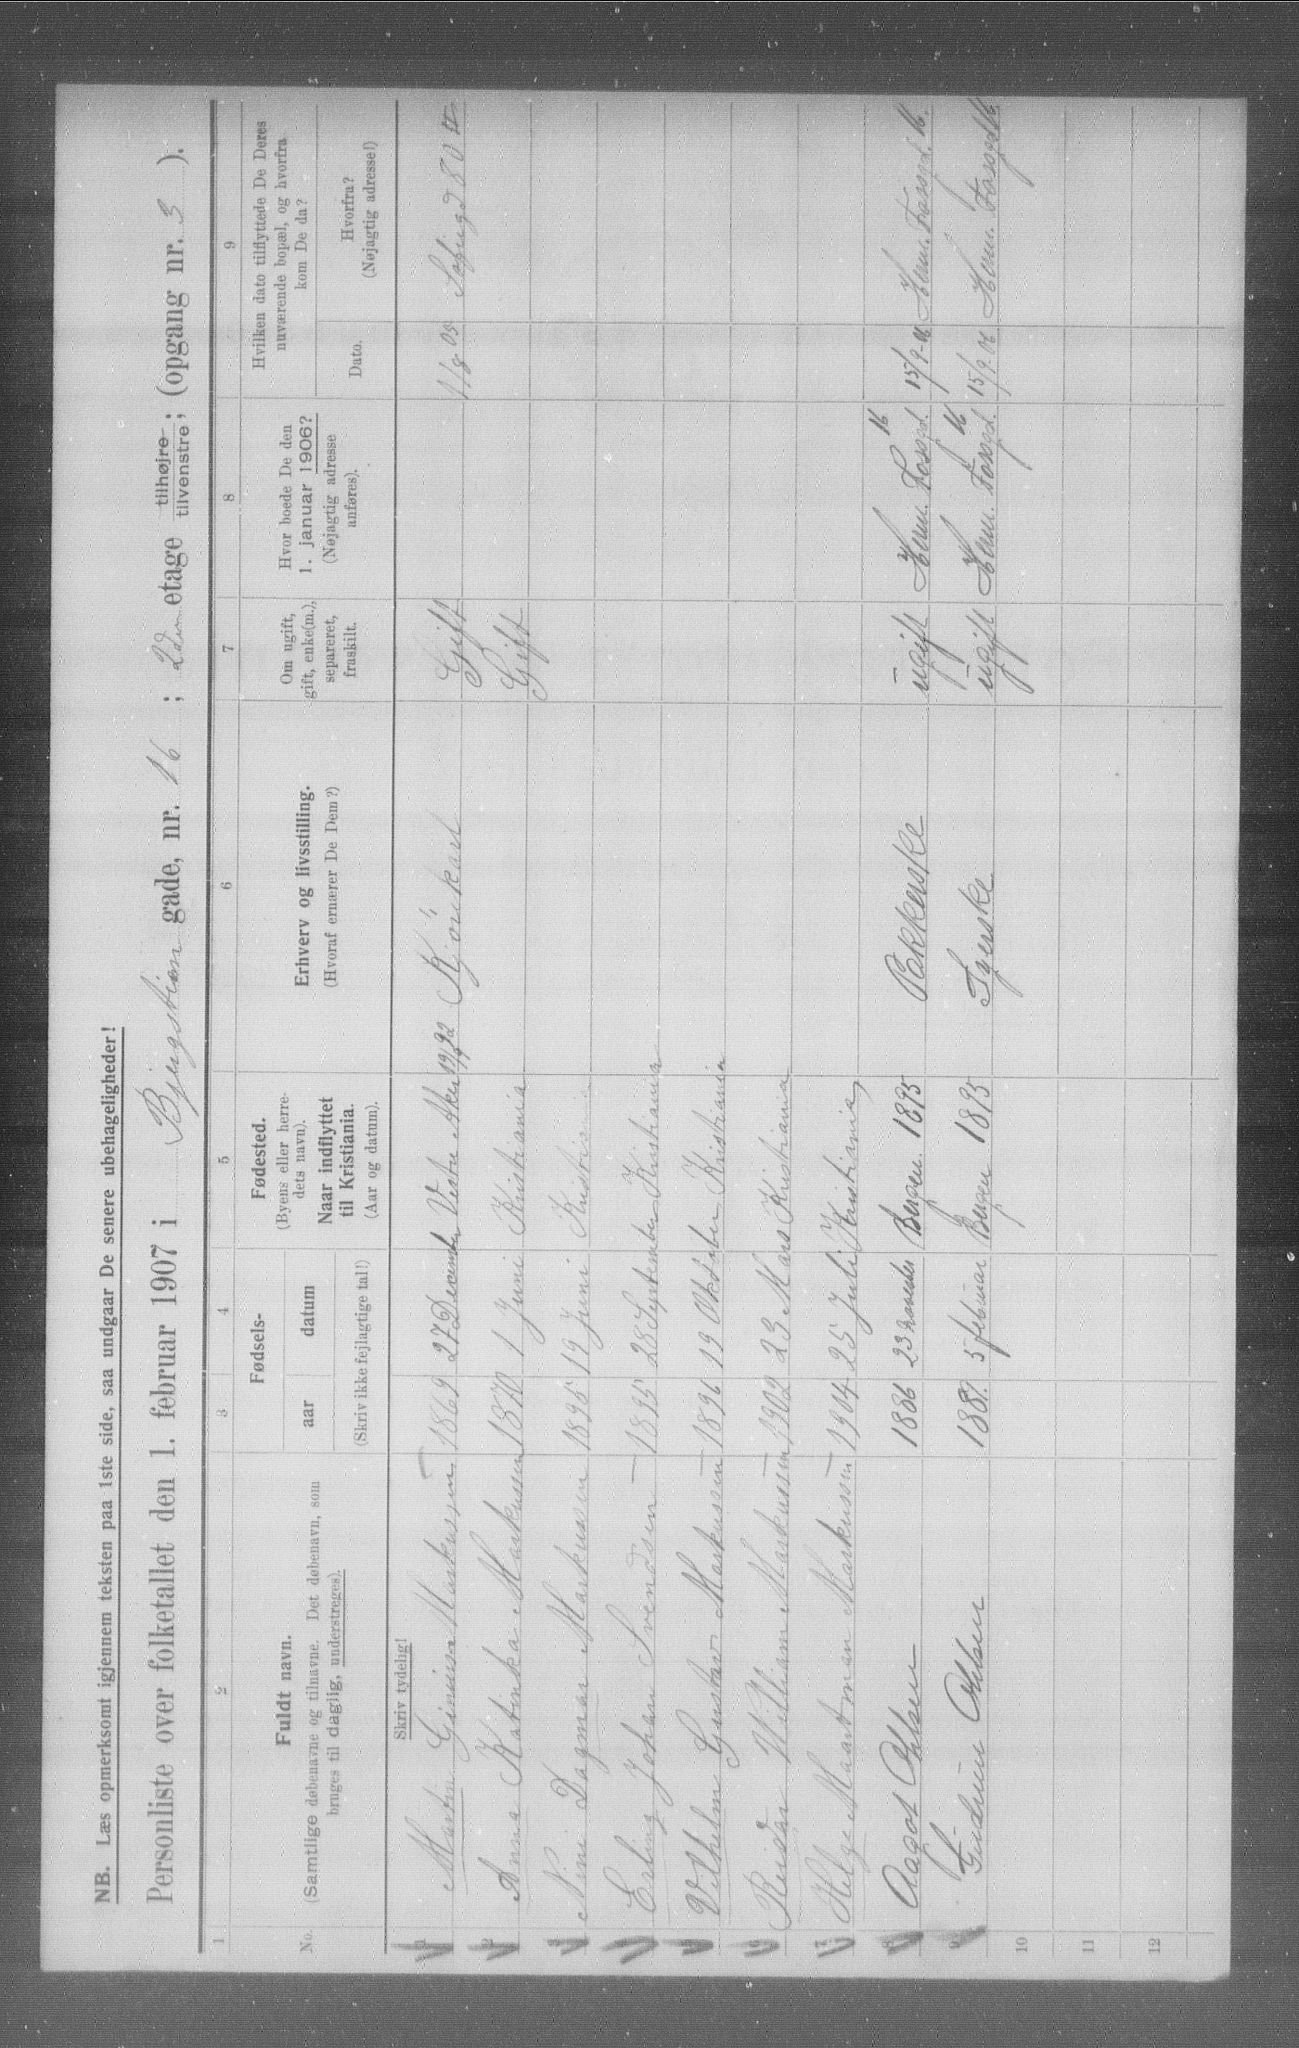 NB. Læs opmerksomt igjennem teksten paa 1ste side, saa undgaar De senere ubehageligheder!
Personliste over folketallet den 1. februar 1907 i Bjergstien gade, nr. 16 ; 2den etage tilhøjre tilvenstre ; (opgang nr. 3 ).
1 2 3 4 5 6 7 8 9
No.
Fuldt navn.
(Samtlige døbenavne og tilnavne. Det døbenavn, som
bruges til daglig, understreges).
Fødsels-
aar datum
(Skriv ikke fejlagtige tal!)
Fødested.
(Byens eller herre-
dets navn).
Naar indflyttet
til Kristiania.
(Aar og datum).
Erhverv og livsstilling.
(Hvoraf ernærer De Dem?)
Om ugift,
gift, enke(m.),
separeret,
fraskilt.
Hvor boede De den
1. januar 1906?
(Nøjagtig adresse
anføres).
Hvilken dato tilflyttede De Deres
nuværende bopæl, og hvorfra
kom De da?
Dato.
Hvorfra?
(Nøjagtig adresse!)
Skriv tydelig!
1 Martin Ginius Markussen 1869 27 December Vestre Aker Kjörekarl Gift 1/8 05
2 Anna Katinka Markussen 1870 1 Juni Kristiania Gift
3 Nini Dagmar Markusen 1895 19 Juni Kristiania
4 Erling Johan Svendsen 1895 28 September Kristiania
5 Vilhelm Gustav Markussen 1896 19 Oktober Kristiania
6 Reidar William Markussen 1902 23 Mars Kristiania
7 Helge Hartman Markussen 1904 25 Juli Kristiania
8 Aagot Ohlsen 1886 23 november Bergen 1895 Pakkerske ugift Herm. Fossgd. 16 15/9-06 Herm. Fossgd. 16.
9 Gudrun Ohlsen 1889. 5 februar Bergen 1895 Syerske ugift Herm. Fossgd. 16 15/9-06 Herm. Fossgd. 16
10
11
12